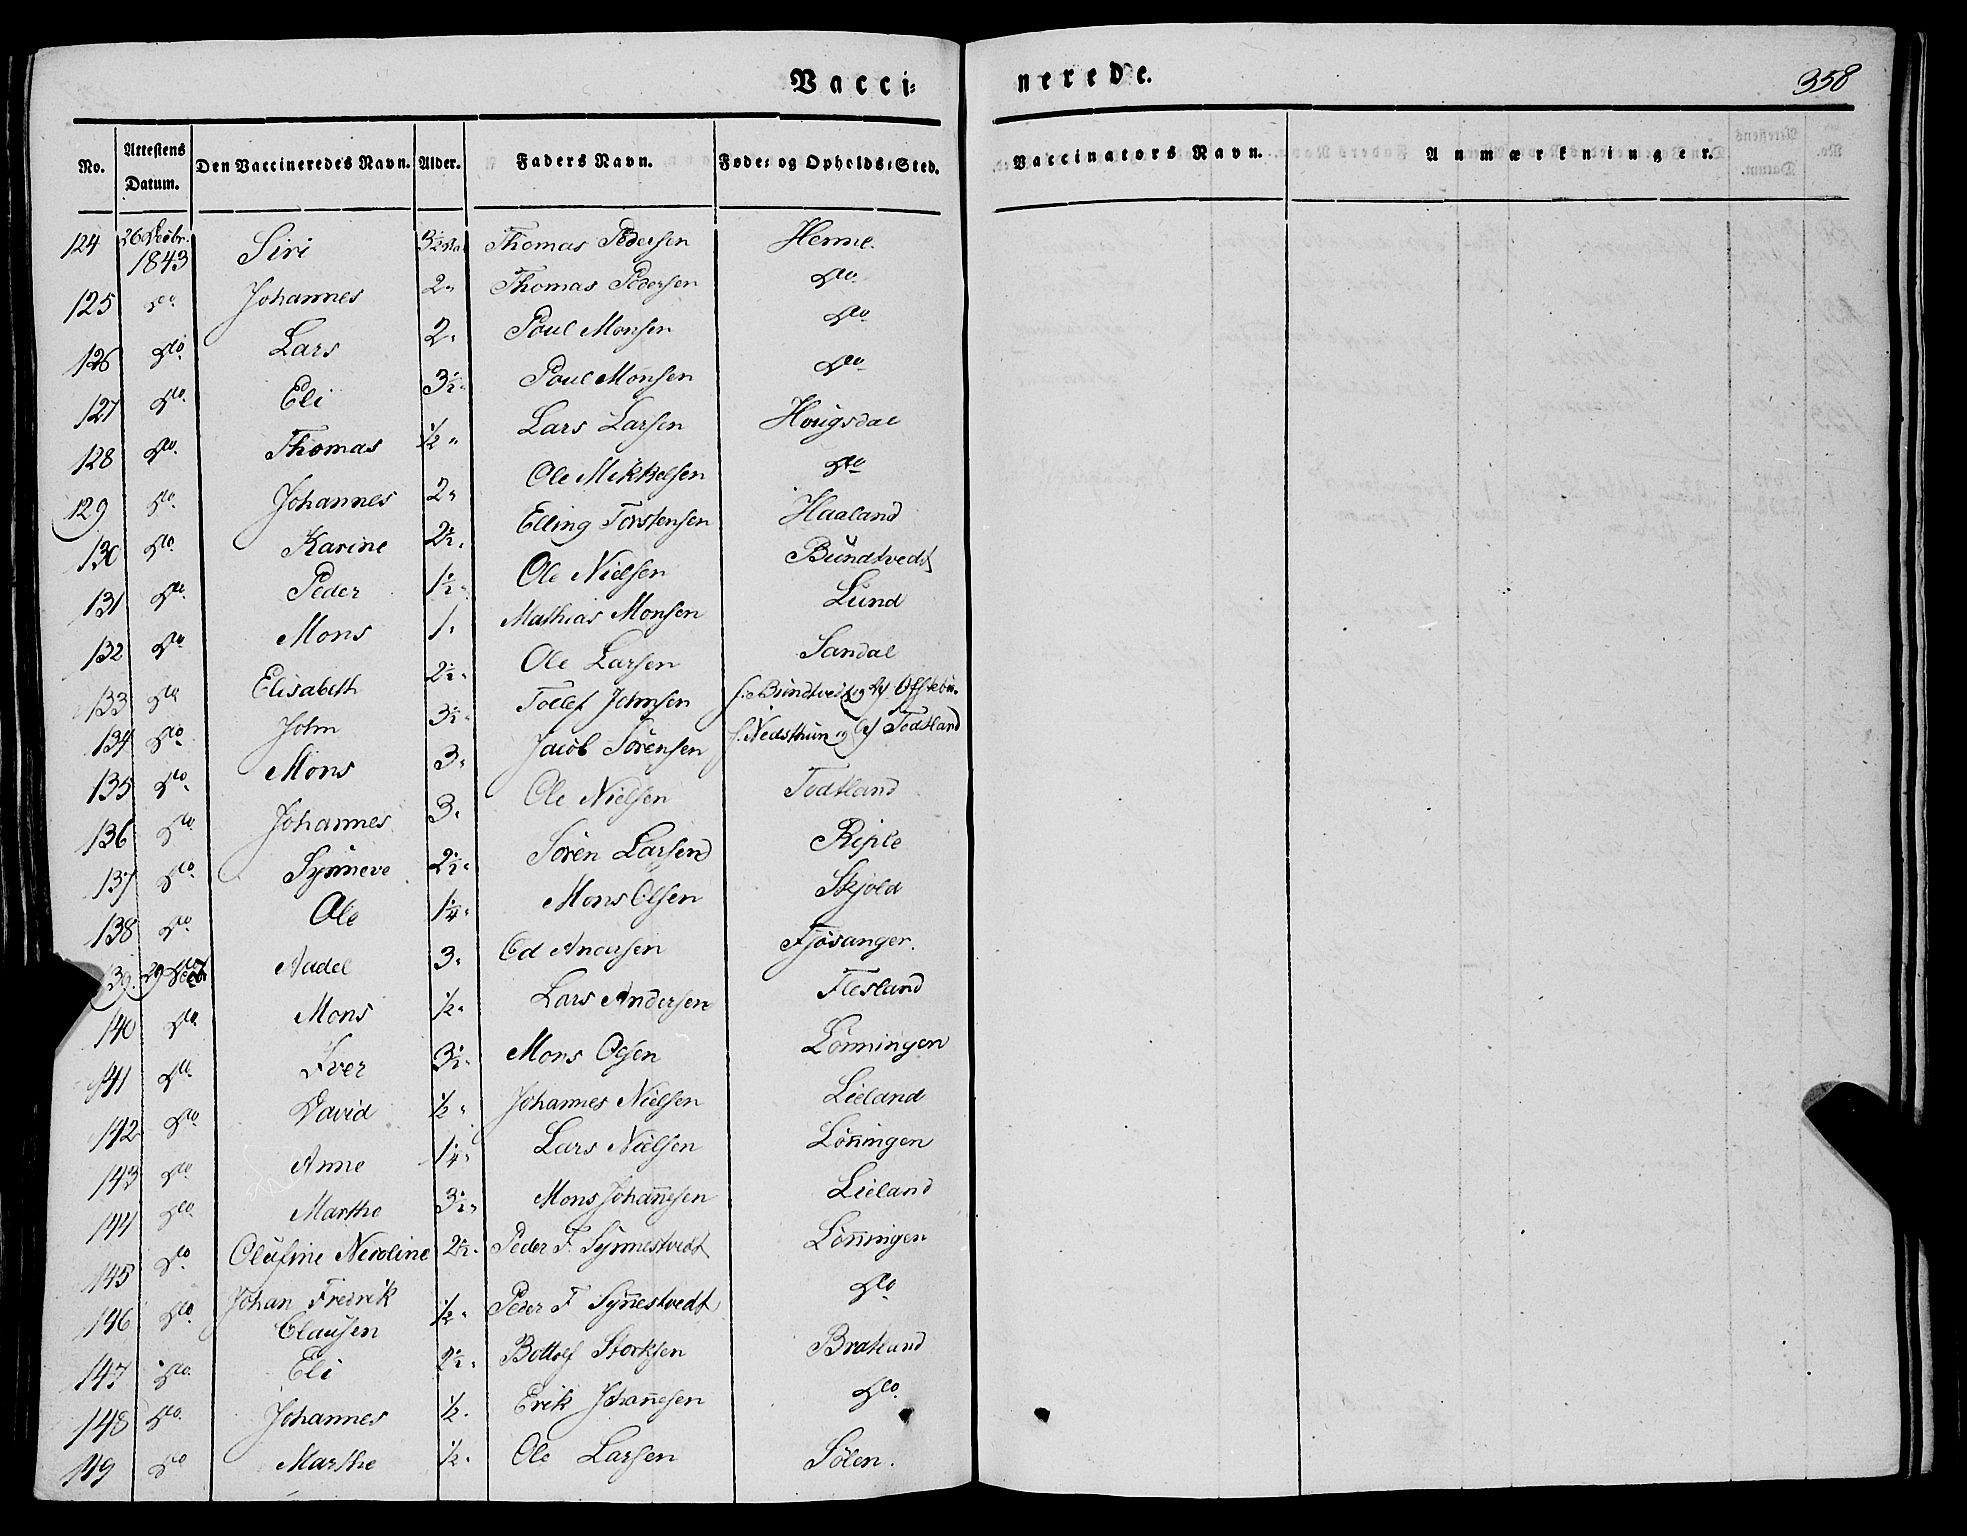 Vacci=
nerede.
358
No. Attestens Datum. Den Vaccineredes Navn. Alder. Faders Navn. Føde= og Opholds=Sted. Vaccinators Navn. Anmærkninger.
124 26 Decbr. 1843 Siri 3½ Thomas Pedersen Henne.
125 do Johannes 2 " Thomas Pedersen do
126 do Lars 2 " Poul Monsen do
127 do Eli 3½ " Poul Monsen do
128 do Thomas ½ " Lars Larsen Hougsdal
129 do Johannes 2 " Ole Mikkelsen do
130 do Karine 2½ " Elling Torstensen Haaland
131 do Peder 1½ " Ole Nielsen Bundtvedt
132 do Mons 1 " Mathias Monsen Lund
133 do Elisabeth 2½ " Ole Larsen Sandal
134 do John 3½ " Tollef Johnsen f. Bundtvedt og
135 do Mons 3 " Jacob Sørensen f. Nedsthun og Todtland
136 do Johannes 3 " Ole Nielsen Todtland
137 do Synneve 2½ " Søren Larsen Riple
138 do Ole 1¼ " Mons Olsen Skjold
139 29 Nadel 3 " Od Andersen Fjøsanger.
140 do Mons ½ " Lars Andersen Flesland
141 do Iver 3½ " Mons Olsen Lønningen
142 do David ½ " Johannes Nielsen Lieland
143 do Anne 1¼ " Lars Nielsen Lön̄ingen
144 do Marthe 3½ " Mons Johan̄esen Lieland
145 do Olufine Nicoline 2½ " Peder F. Synnestvedt Lön̄ingen
146 do Johan Fredrik Clausen ½ " Peder F Syn̄estvedt do
147 do Eli 2½ " Bottolf Storksen Bratlund
148 do Johannes ½ " Erik Johan̄esen do
149 do Marthe ½ " Ole Larsen Sølen.